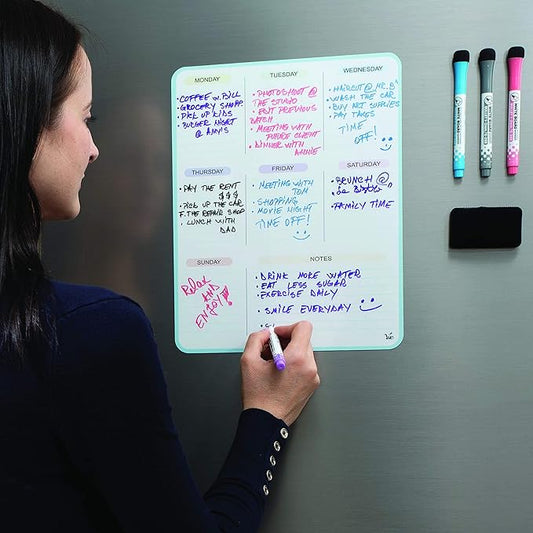 MONDAY
• COFFEE w. BILL
• GROCERY SHOPP.
• PICK UP KIDS
• BURGER NIGHT
@ AMY'S
TUESDAY
• PHOTOSHOOT @
THE STUDIO
• EDIT PREVIOUS
BATCH
• MEETING WITH
FUTURE CLIENT
• DINNER WITH
ANNIE
WEDNESDAY
• HAIRCUT @ MR. B
• WASH THE CAR
• BUY ART SUPPLIES
• PAY TAXES
TIME
OFF!
THURSDAY
• PAY THE RENT
$ $ $
• PICK UP THE CAR
F. THE REPAIR SHOP
• LUNCH WITH
DAD
FRIDAY
• MEETING WITH
TOM
• SHOPPING
• MOVIE NIGHT
TIME OFF!
SATURDAY
• BRUNCH @
• FAMILY TIME
SUNDAY
RELAX
AND
ENJOY!
NOTES
• DRINK MORE WATER
• EAT LESS SUGAR
• EXERCISE DAILY
• SMILE EVERYDAY